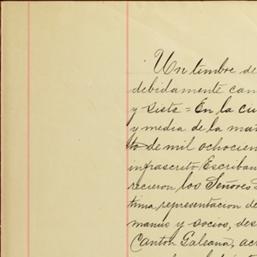 Un timbre de
debidamente can
y siete = En la cu
y media de la mañ
to de mil ochocien
infrascrito Escriban
recieron los Señores
tima representacion de
manus y socios, des
Canton Galeano, ac